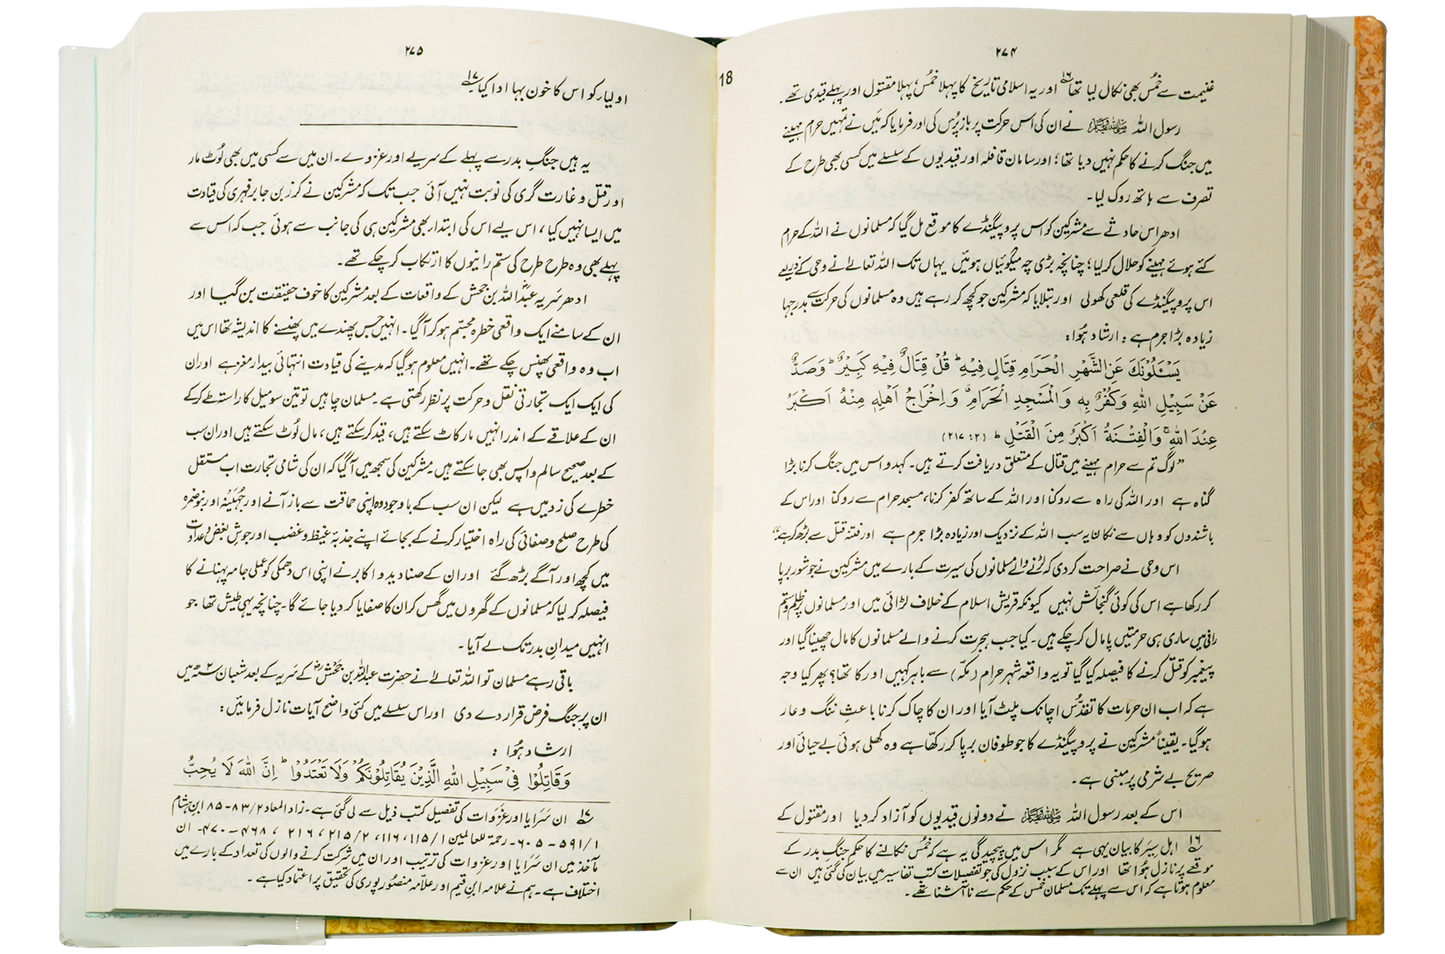 ۲۷۴
غنیمت سے خمُس بھی نکال لیا تھا ۱۶؎ اور یہ اسلامی تاریخ کا پہلا خمُس، پہلا مقتول اور پہلے قیدی تھے۔
رسول اللہ ﷺ نے ان کی اس حرکت پر باز پرس کی اور فرمایا کہ مَیں نے تمہیں حرام مہینے
میں جنگ کرنے کا حکم نہیں دیا تھا؛ اور سامان قافلہ اور قیدیوں کے سلسلے میں کسی بھی طرح کے
تصرف سے ہاتھ روک لیا۔
ادھر اس حادثے سے مشرکین کو اس پروپیگنڈے کا موقع مل گیا کہ مسلمانوں نے اللہ کے حرام
کئے ہوئے مہینے کو حلال کر لیا؛ چنانچہ بڑی چہ میگوئیاں ہوئیں یہاں تک اللہ تعالےٰ نے وحی کے ذریعے
اس پروپیگنڈے کی قلعی کھولی اور بتلایا کہ مشرکین جو کچھ کر رہے ہیں وہ مسلمانوں کی حرکت سے بدرجہا
زیادہ بڑا جرم ہے ۔ ارشاد ہُوا:
يَسْـَٔلُوْنَكَ عَنِ الشَّهْرِ الْحَرَامِ قِتَالٍ فِيْهِ ؕ قُلْ قِتَالٌ فِيْهِ كَبِيْرٌ ؕ وَصَدٌّ
عَنْ سَبِيْلِ اللهِ وَكُفْرٌ بِهٖ وَالْمَسْجِدِ الْحَرَامِ ۗ وَاِخْرَاجُ اَهْلِهٖ مِنْهُ اَكْبَرُ
عِنْدَ اللهِ ۚ وَالْفِتْنَةُ اَكْبَرُ مِنَ الْقَتْلِ ؕ (۲: ۲۱۷)
”لوگ تم سے حرام مہینے میں قتال کے متعلق دریافت کرتے ہیں۔ کہدو اس میں جنگ کرنا بڑا
گناہ ہے اور اللہ کی راہ سے روکنا اور اللہ کے ساتھ کفر کرنا، مسجد حرام سے روکنا اور اس کے
باشندوں کو وہاں سے نکالنا یہ سب اللہ کے نزدیک اور زیادہ بڑا جرم ہے اور فتنہ قتل سے بڑھ کر ہے“
اس وحی نے صراحت کر دی کہ لڑنے والے مسلمانوں کی سیرت کے بارے میں مشرکین نے جو شور برپا
کر رکھا ہے اس کی کوئی گنجائش نہیں کیونکہ قریش اسلام کے خلاف لڑائی میں اور مسلمانوں پر ظلم و ستم
رانی میں ساری ہی حرمتیں پامال کر چکے ہیں۔ کیا جب ہجرت کرنے والے مسلمانوں کا مال چھینا گیا اور
پیغمبر کو قتل کرنے کا فیصلہ کیا گیا تو یہ واقعہ شہر حرام (مکّہ) سے باہر کہیں اور کا تھا؟ پھر کیا وجہ
ہے کہ اب ان حرمات کا تقدّس اچانک پلٹ آیا اور ان کا چاک کرنا باعثِ ننگ و عار
ہو گیا۔ یقیناً مشرکین نے پروپیگنڈے کا جو طوفان برپا کر رکھا ہے وہ کھلی ہوئی بے حیائی اور
صریح بے شرمی پر مبنی ہے۔
اس کے بعد رسول اللہ ﷺ نے دونوں قیدیوں کو آزاد کر دیا اور مقتول کے
۱۶؎ اہل سِیَر کا بیان یہی ہے مگر اس میں پیچیدگی یہ ہے کہ خمُس نکالنے کا حکم جنگ بدر کے
موقعے پر نازل ہُوا تھا اور اس کے سبب نزول کی جو تفصیلات کتب تفاسیر میں بیان کی گئی ہیں ان سے
معلوم ہوتا ہے کہ اس سے پہلے تک مسلمان خمس کے حکم سے نا آشنا تھے۔
18
۲۷۵
اولیاء کو اس کا خون بہا ادا کیا ۱۷؎
یہ ہیں جنگِ بدر سے پہلے کے سریے اور غزوے۔ ان میں سے کسی میں بھی لُوٹ مار
اور قتل و غارت گری کی نوبت نہیں آئی جب تک کہ مشرکین نے کرز بن جابر فہری کی قیادت
میں ایسا نہیں کیا، اس لیے اس کی ابتداء بھی مشرکین ہی کی جانب سے ہوئی جب کہ اس سے
پہلے بھی وہ طرح طرح کی ستم رانیوں کا ارتکاب کر چکے تھے۔
ادھر سَریہ عبداللہؓ بن جحش کے واقعات کے بعد مشرکین کا خوف حقیقت بن گیا اور
ان کے سامنے ایک واقعی خطرہ مجسّم ہو کر آ گیا۔ انہیں جس پھندے میں پھنسنے کا اندیشہ تھا اس میں
اب وہ واقعی پھنس چکے تھے۔ انہیں معلوم ہو گیا کہ مدینے کی قیادت انتہائی بیدار مغز ہے اور ان
کی ایک ایک تجارتی نقل و حرکت پر نظر رکھتی ہے۔ مسلمان چاہیں تو تین سو میل کا راستہ طے کر کے
ان کے علاقے کے اندر انہیں مار کاٹ سکتے ہیں، قید کر سکتے ہیں، مال لُوٹ سکتے ہیں اور ان سب
کے بعد صحیح سالم واپس بھی جا سکتے ہیں۔ مشرکین کی سمجھ میں آ گیا کہ ان کی شامی تجارت اب مستقل
خطرے کی زد میں ہے لیکن ان سب کے باوجود وہ اپنی حماقت سے باز آنے اور جُہَینَہ اور بنو ضمرہ
کی طرح صلح و صفائی کی راہ اختیار کرنے کے بجائے اپنے جذبۂ غیظ و غضب اور جوش بغض و عداوت
میں کچھ اور آگے بڑھ گئے اور ان کے صنادید و اکابر نے اپنی اس دھمکی کو عملی جامہ پہنانے کا
فیصلہ کر لیا کہ مسلمانوں کے گھروں میں گھس کر ان کا صفایا کر دیا جائے گا۔ چنانچہ یہی طیش تھا جو
انہیں میدانِ بدر تک لے آیا۔
باقی رہے مسلمان تو اللہ تعالےٰ نے حضرت عبداللہؓ بن جحش کے سَریہ کے بعد شعبان ۲ھ میں
ان پر جنگ فرض قرار دے دی اور اس سلسلے میں کئی واضح آیات نازل فرمائیں:
ارشاد ہُوا:
وَقَاتِلُوْا فِيْ سَبِيْلِ اللهِ الَّذِيْنَ يُقَاتِلُوْنَكُمْ وَلَا تَعْتَدُوْا ؕ اِنَّ اللهَ لَا يُحِبُّ
۱۷؎ ان سَرَایا اور غزوات کی تفصیل کتب ذیل سے لی گئی ہے۔ زاد المعاد ۲/۸۳-۸۵ ابن ہشام
۱/۵۹۱-۶۰۵۔ رحمۃ للعالمین ۱/۱۱۵، ۱۱۶، ۲/۲۱۵، ۲۱۶، ۴۶۸-۴۷۰۔ ان
مآخذ میں ان سَرَایا اور غزوات کی ترتیب اور ان میں شرکت کرنے والوں کی تعداد کے بارے میں
اختلاف ہے۔ ہم نے علامہ ابن قیم اور علّامہ منصور پوری کی تحقیق پر اعتماد کیا ہے۔